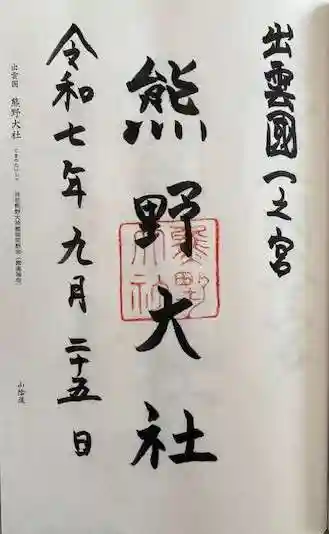 出雲國一之宮
熊野大社
熊野大社
令和七年九月二十五日
出雲国 熊野大社
くまのたいしゃ
山陰道